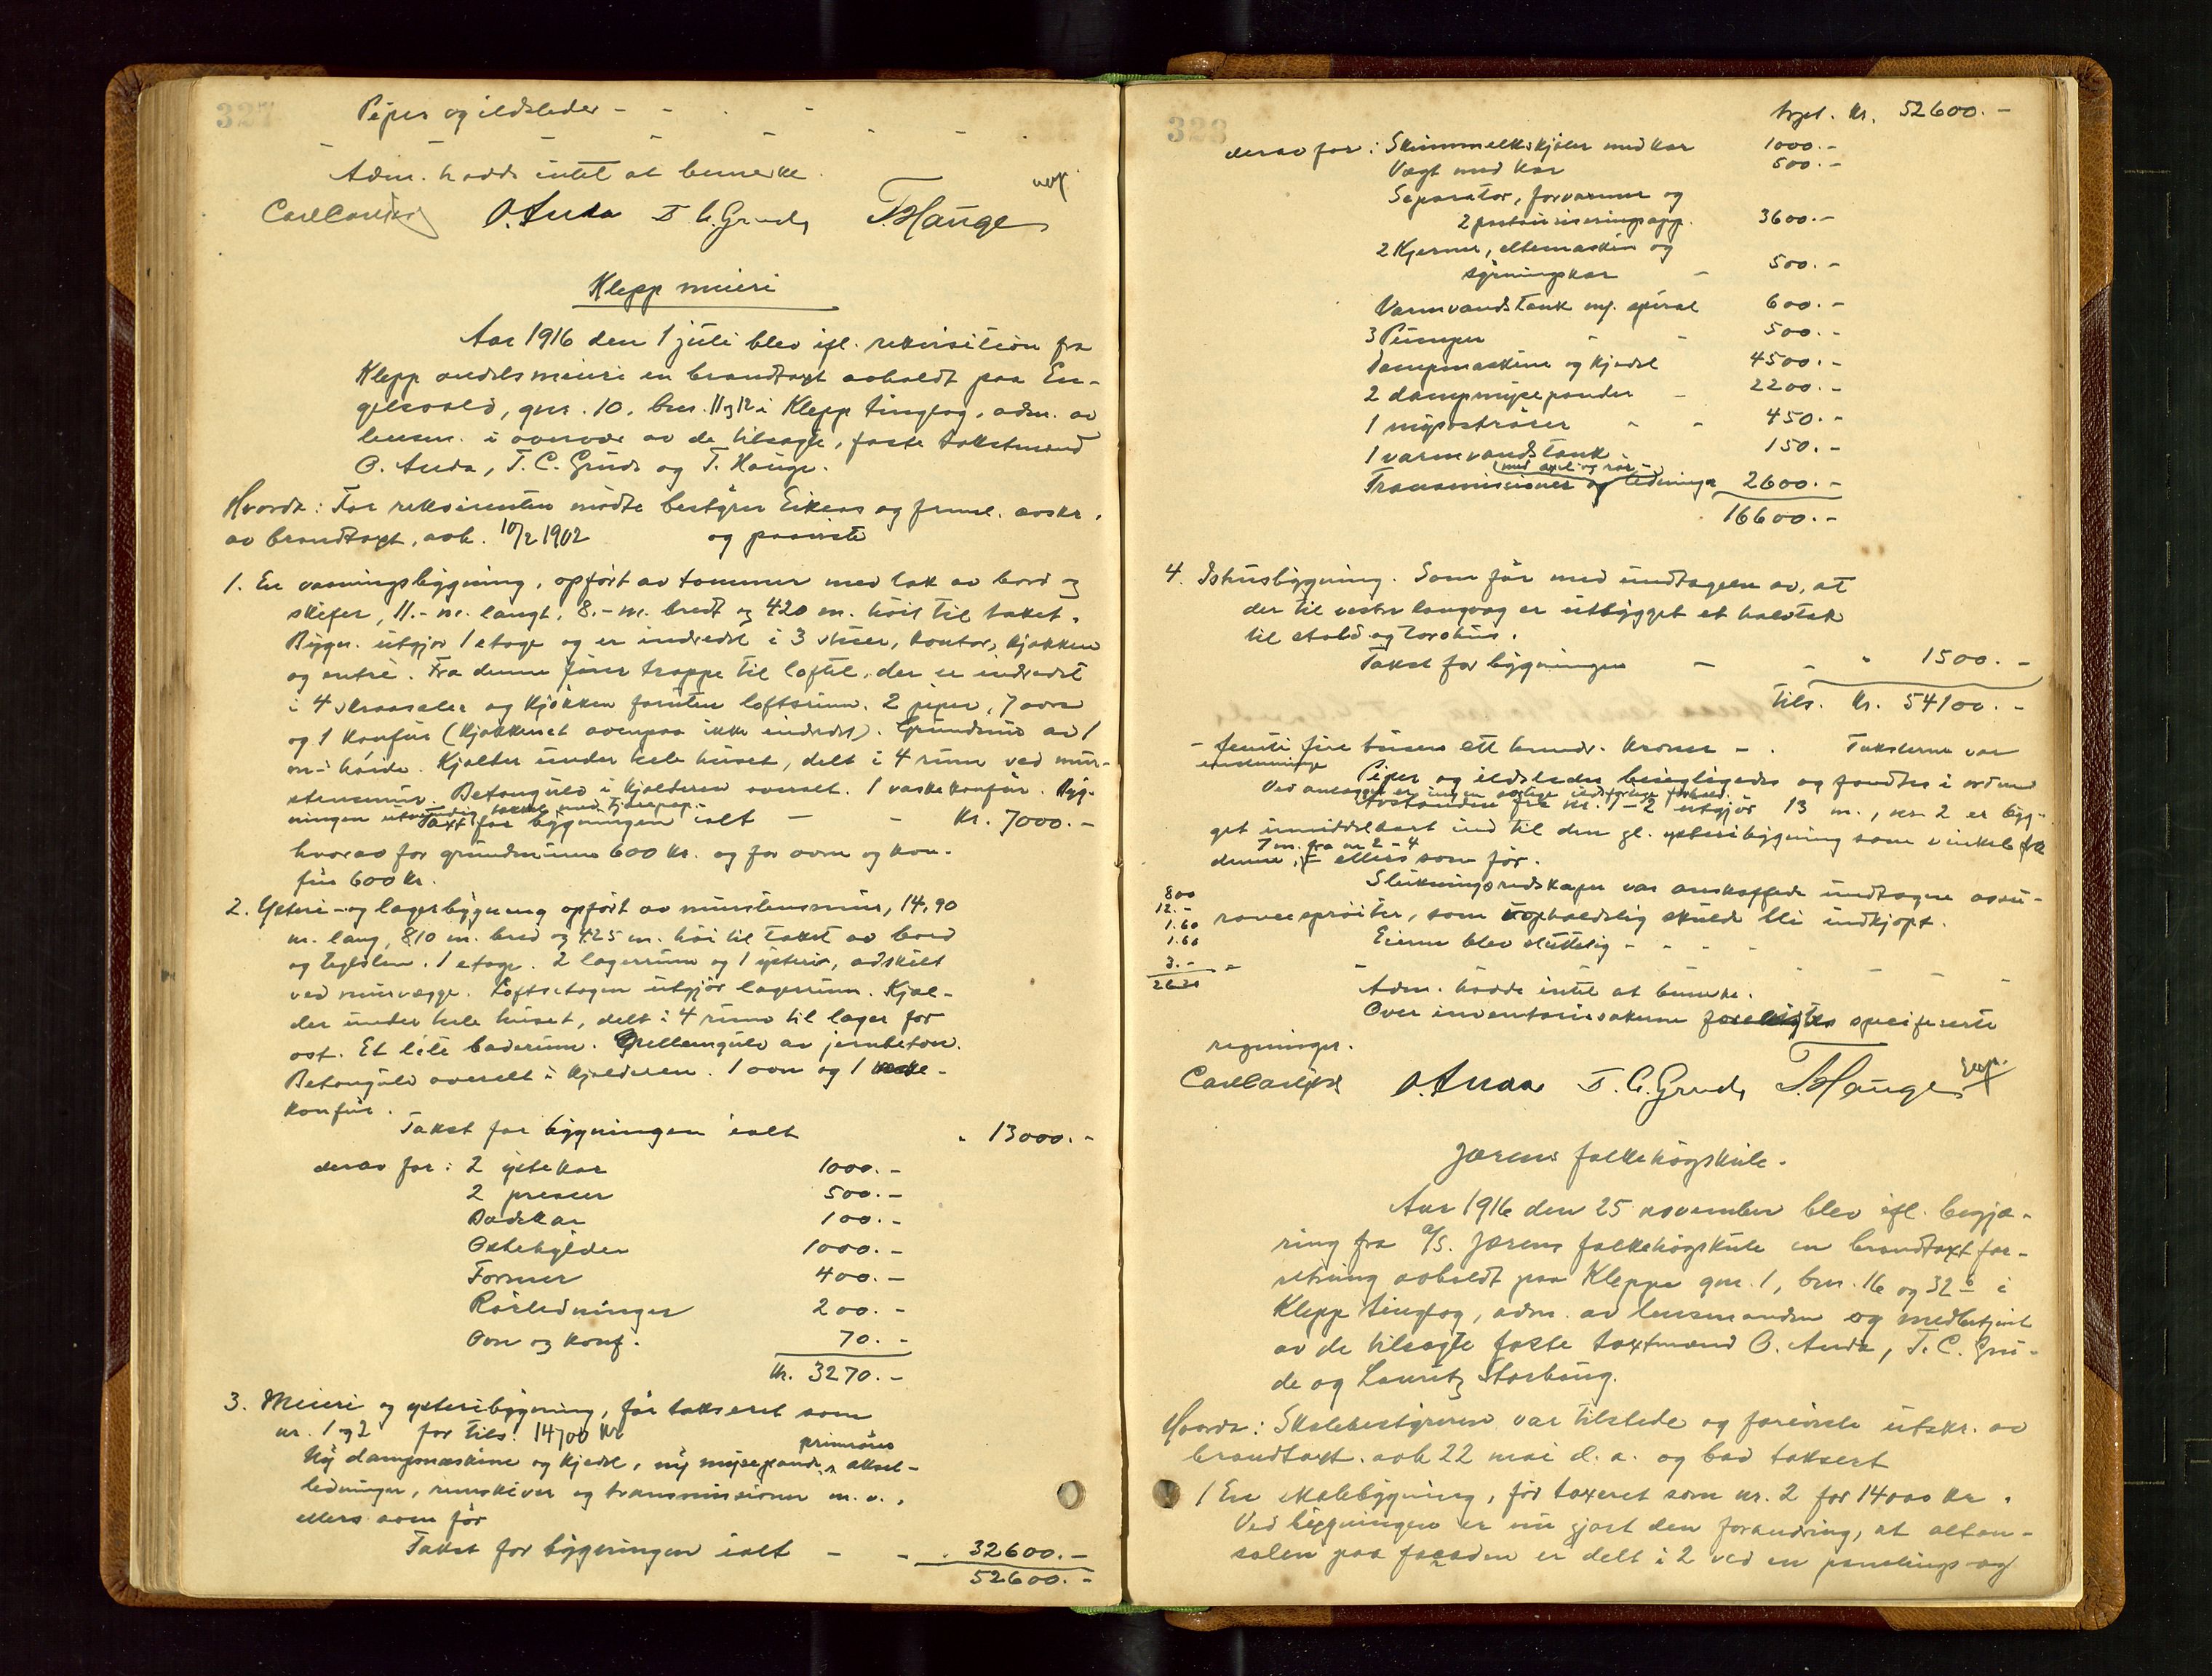 327
Piper og ildsteder - - . -
- - - - - - .
Adm. hadde intet at bemerke.
O. Anda T. C. Grude T. Hauge
Klepp meieri
Aar 1916 den 1 juli blev ifl. rekvisition fra
Klepp andelsmeieri en brandtaxt avholdt paa En-
gelsvold, gnr. 10, bnr. 11 og 12 i Klepp tinglag, adm. av
lensm. i overvær av de tilsagte, faste takstmænd
O. Anda, T. C. Grude og T. Hauge.
Hvorda: For rekvirenten mødte bestyrer Eikeas og freml. avskr.
av brandtaxt, avh. 10/2 1902 og paaviste
1. En vaaningsbygning, opført av tømmer med tak av bord og
skifer, 11.- m. langt, 8.- m. bredt og 420 m. høit til taket.
Bygn. utgjør 1 etage og er indredet i 3 stuer, kontor, kjøkken
og entré. Fra denne fører trappe til loftet, der er indredet
i 4 skraasaler og kjøkken foruten loftsrum. 2 piper, 7 ovne
og 1 komfur (kjøkkenet ovenpaa ikke indredet). Grundmur av 1
m-s høide. Kjelder under hele huset, delt i 4 rum ved mur-
stensmur. Betongulv i kjelderen overalt. 1 vaskekomfur. Byg-
ningen utvendig tækket med tjærepap.-
Taxt for bygningen ialt - - Kr. 7000.-
hvorav for grundmuren 600 kr. og for ovne og kom-
fur 600 kr.
2. Ysteri- og lagerbygning opført av murstensmur, 14,90
m. lang, 810 m. bred og 425 m. høi til taket av bord
og teglsten. 1 etage. 2 lagerrum og 1 ysteri, adskilt
ved murvægge. Loftsetagen utgjør lagerrum. Kjel-
der under hele huset, delt i 4 rum til lager for
ost. Et lite baderum. Mellemgulv av jernbeton.
Betongulv overalt i kjelderen. 1 ovn og 1 vaske-
komfur.
Takst for bygningen ialt " 13000.-
derav for: 2 ystekar 1000.-
2 presser 500.-
Badekar 100.-
Ostehylder 1000.-
Former 400.-
Rørledninger 200.-
Ovn og komf. 70.-
Kr. 3270.-
3. Meieri og ysteribygning, før takseret som
nr. 1 og 2 for tils. 14700 kr.
Ny dampmaskine og kjedel, ny mysepande, aksel-
ledninger, remskiver og transmissioner m. v.,
ellers som før
Takst for bygningen ialt - - " 32600.-
52600.-
328
trpt. Kr. 52600.-
derav for: Skummelkskjøler med kar 1000.-
Vægt med kar 500.-
Separator, forvarmer og
2 pasteuriseringsapp. 3600.-
2 Kjerner, eltemaskin og
syrningskar - 500.-
Varmvandstank m/. spiral 600.-
3 Pumper - - 500.-
Dampmaskine og kjedel 4500.-
2 dampmysepander - 2200.-
1 myseostrører - - 450.-
1 varmvandstank. 150.-
(med axel og rør-)
Transmissioner og ledninger 2600.-
16600.-
4. Ishusbygning. Som før med undtagelse av, at
der til vestre langvæg er utbygget et halvtak
til stald og torvhus.
Takst for bygningen - - " 1500.-
Tils. Kr. 54100.-
- femti fire tusen ett hundr. kroner - . Taksterne var
enstemmige
Piper og ildsteder besigtigedes og fandtes i orden
Ved anlægget er ingen særlige ildsfarlige forhold.
Avstanden fra nr. 1 - 2 utgjør 13 m., nr. 2 er byg-
get umiddelbart ind til den gl. ysteribygning som vinkel fra
7 m. fra nr 2 - 4
denne, ellers som før.
Slukningsredskaper var anskaffede undtagen assu-
rancesprøiter, som uopholdelig skulde bli indkjøpt.
Eieren blev skittelig - - - -
800
12.-
1.60
1.60
3.-
Adm. hadde intet at bemerke.
Over inventariesakerne specifiserte
regninger.
O. Anda T. C. Grude T. Hauge
Jærens folkehøgskule.
Aar 1916 den 25 november blev ifl. begjæ-
ring fra A/S. Jærens folkehøgskule en brandtaxtfor-
retning avholdt paa Kleppe gnr. 1, bnr. 16 og 32 b i
Klepp tinglag, adm. av lensmanden og medbetjent
av de tilsagte faste taxtmænd O. Anda, T. C. Gru-
de og Lauritz Storhaug.
Hvorda: Skolebestyreren var tilstede og foreviste utskr. av
brandtaxt. avh 22 mai d. a. og bad taksert
1 En skolebygning, før taxeret som nr. 2 for 14000 kr.
Ved bygningen er nu gjort den forandring, at altan-
salen paa facaden er delt i 2 ved en panelings-æg